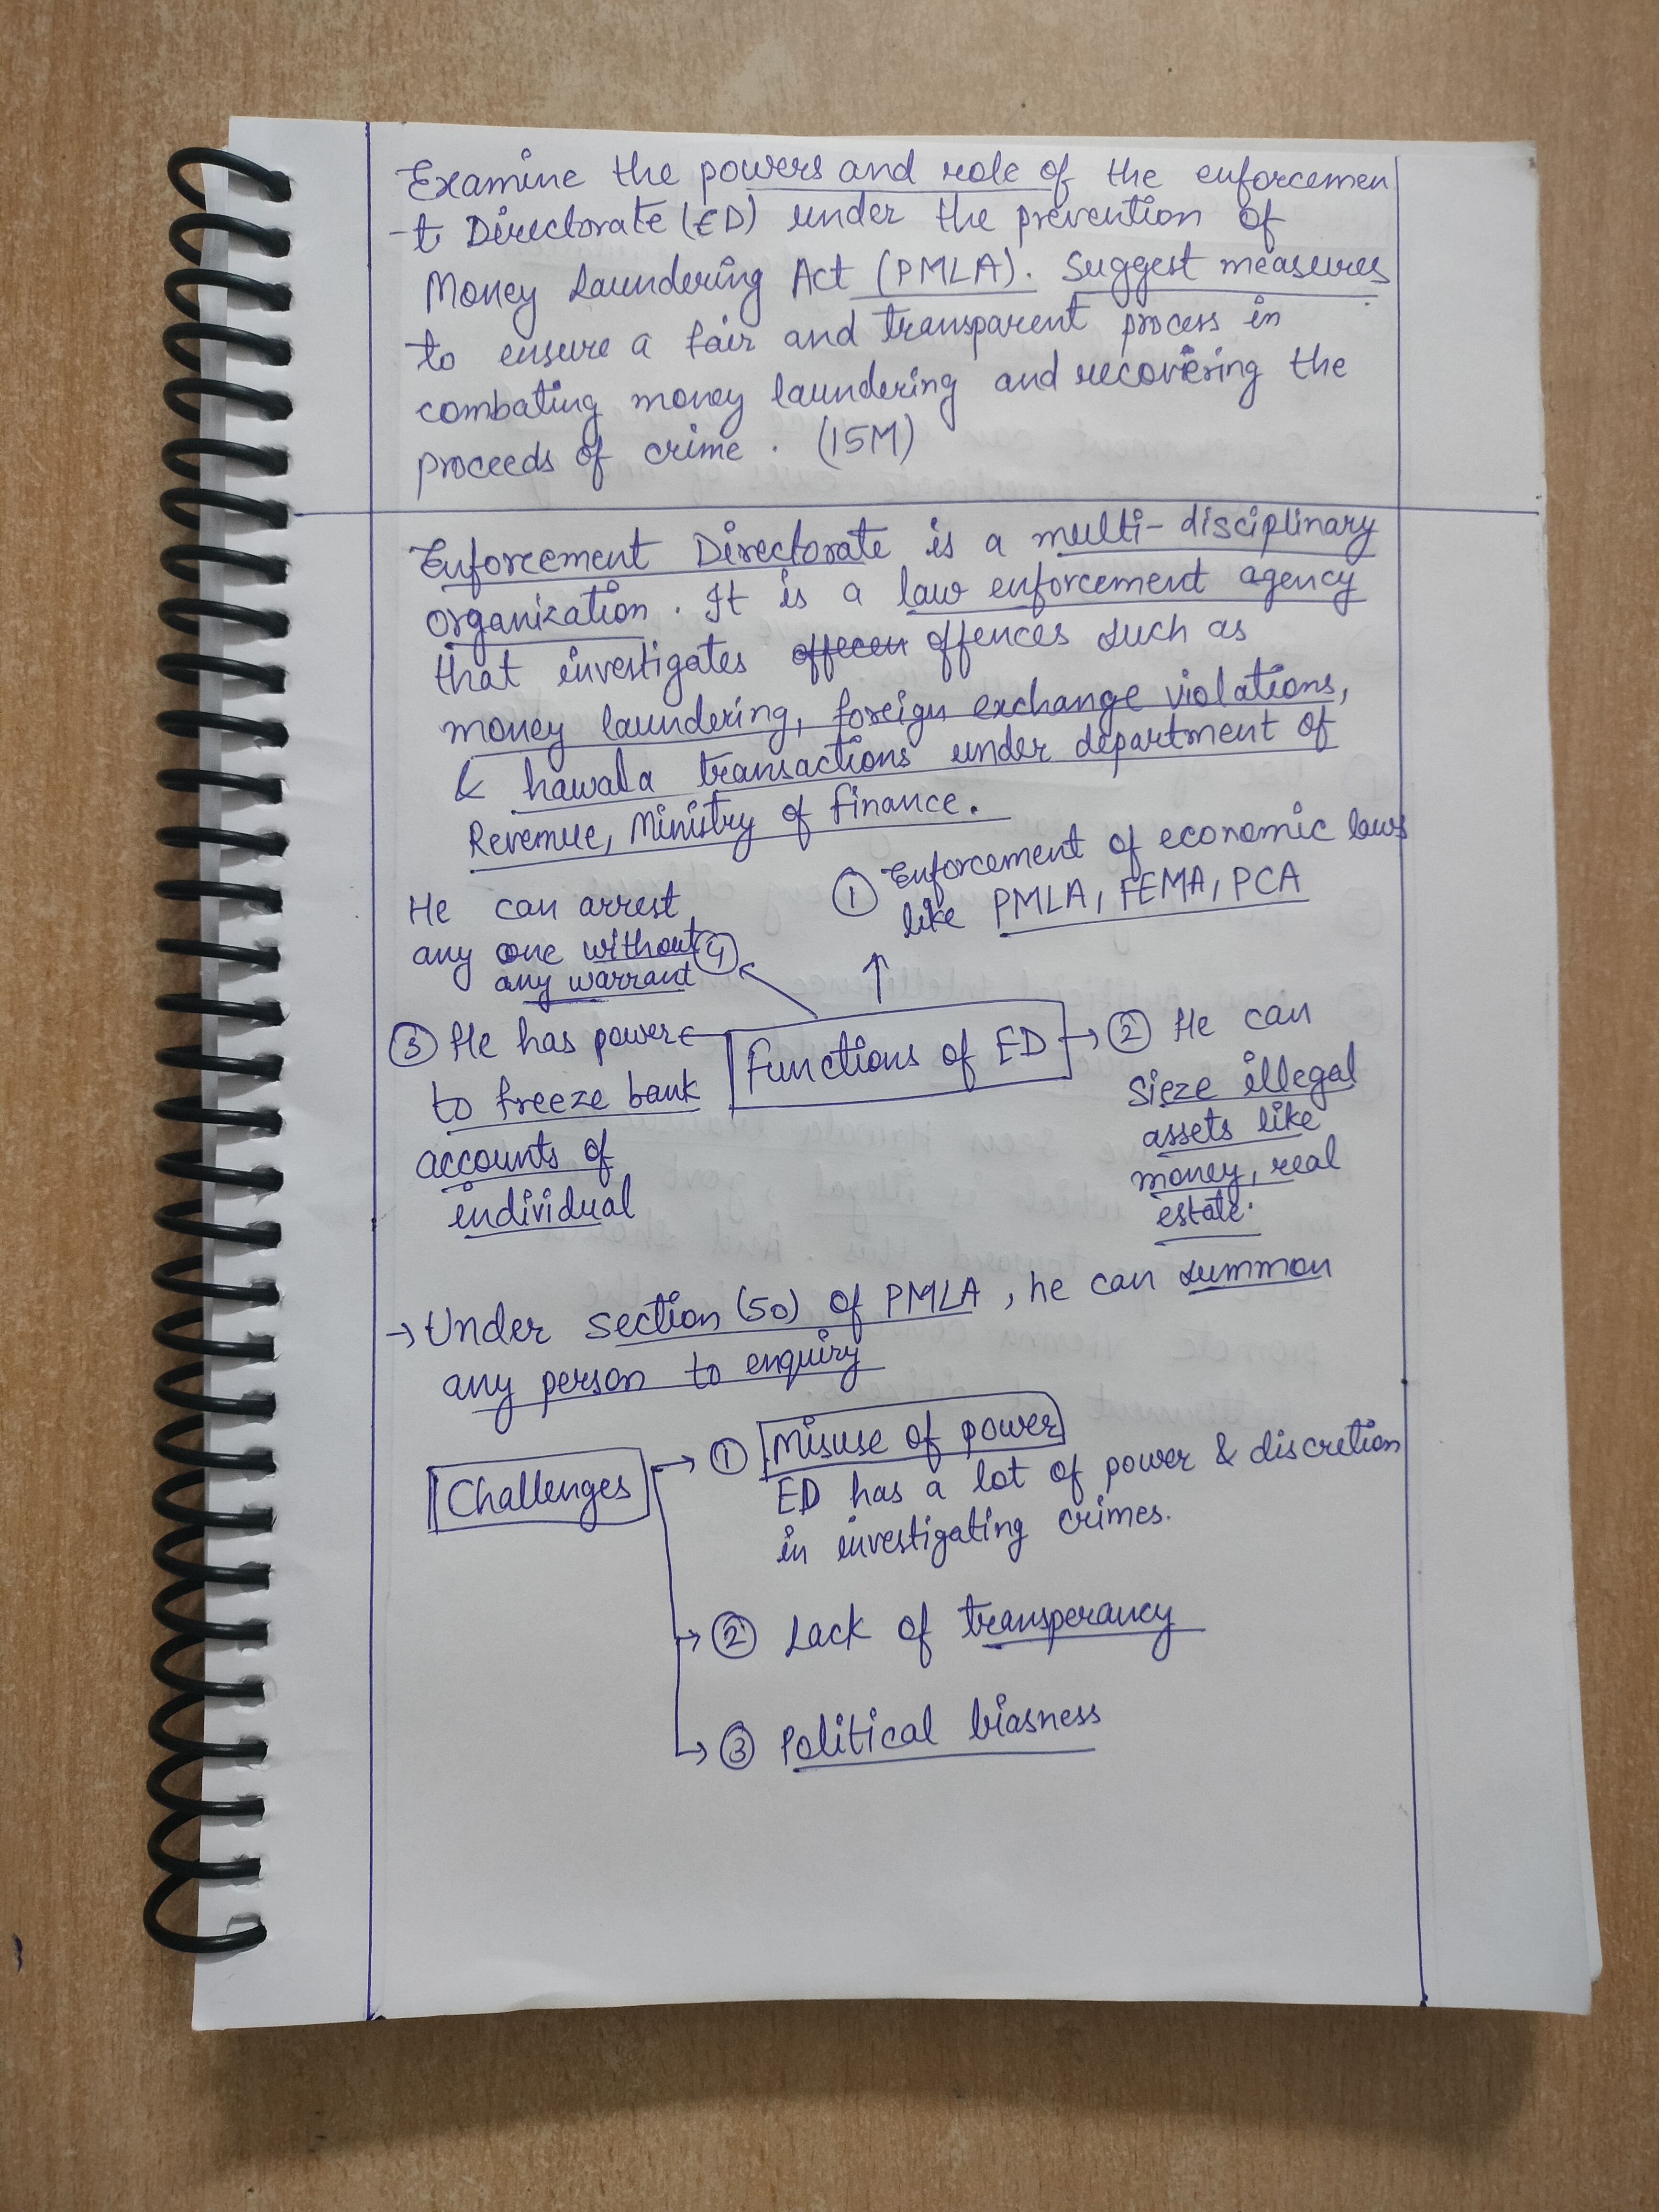 Examine the powers and role of the enforcemen
-t Directorate (ED) under the prevention of
Money Laundering Act (PMLA). Suggest measures
to ensure a fair and transparent process in
combating money laundering and recovering the
proceeds of crime. (15M)
Enforcement Directorate is a multi-disciplinary
organization. It is a law enforcement agency
that investigates offences such as
money laundering, foreign exchange violations,
& hawala transactions under department of
Revenue, Ministry of finance.
① Enforcement of economic laws
like PMLA, FEMA, PCA
He can arrest
any one without ④
any warrant
Functions of ED
② He can
sieze illegal
assets like
money, real
estate.
③ He has power
to freeze bank
accounts of
individual
→ Under section (50) of PMLA, he can summon
any person to enquiry
Challenges → ① Misuse of power
ED has a lot of power & discretion
in investigating crimes.
→ ② Lack of transperancy
→ ③ Political biasness